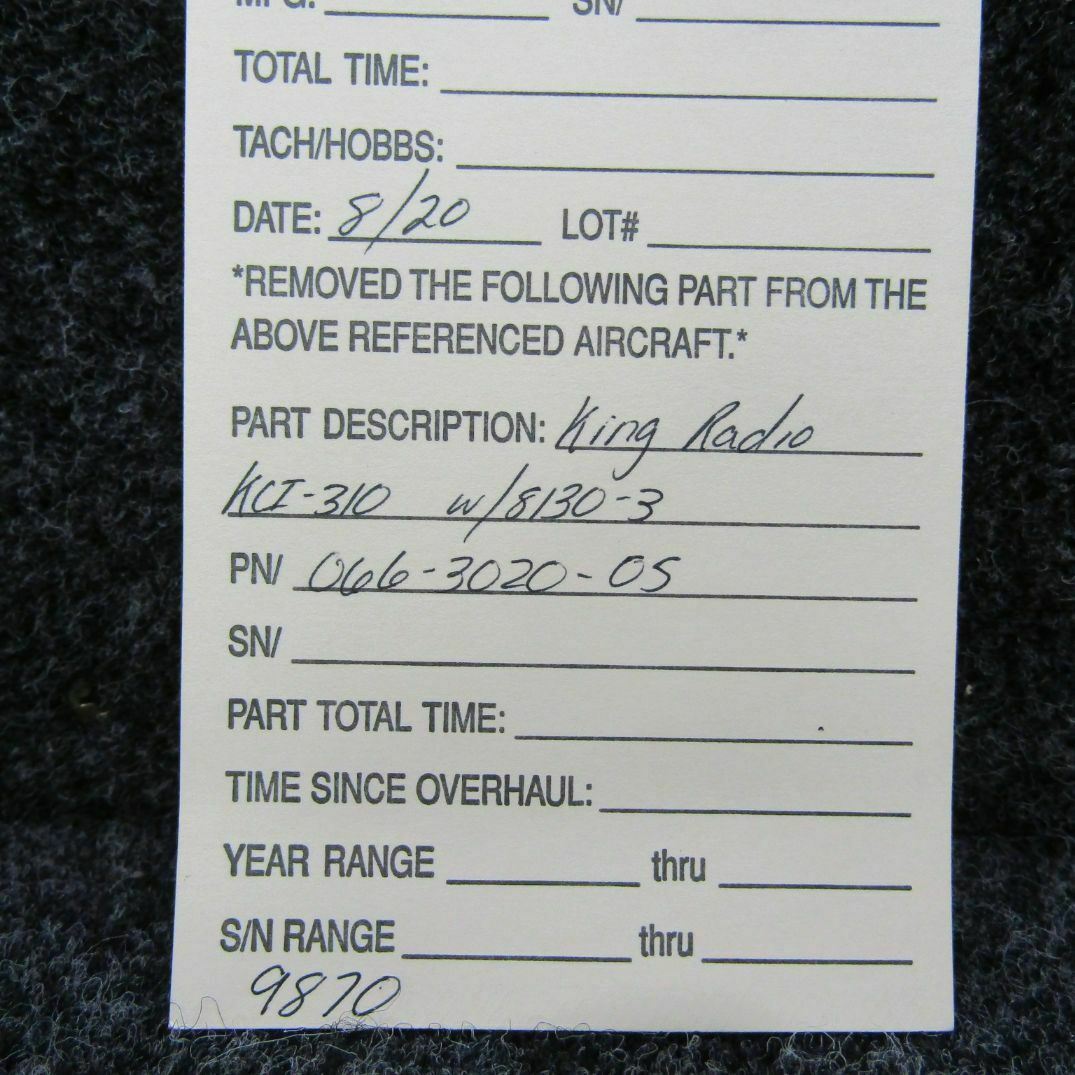 MFG: SN/
TOTAL TIME:
TACH/HOBBS:
DATE: 8/20 LOT#
*REMOVED THE FOLLOWING PART FROM THE
ABOVE REFERENCED AIRCRAFT.*
PART DESCRIPTION: King Radio
KCI-310 w/8130-3
PN/ 066-3020-05
SN/
PART TOTAL TIME:
TIME SINCE OVERHAUL:
YEAR RANGE thru
S/N RANGE thru
9870